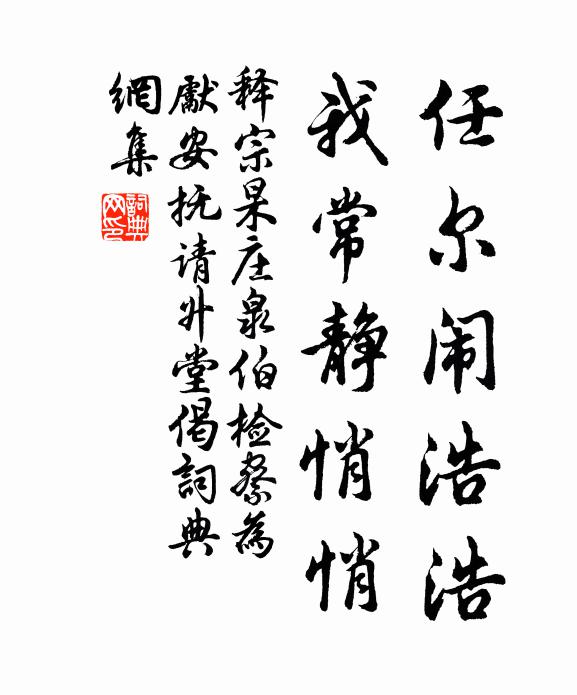 任尔闹浩浩
我常静悄悄
释宗杲庄泉伯检察为
献安抚请升堂偈词典
网集
词典
网印